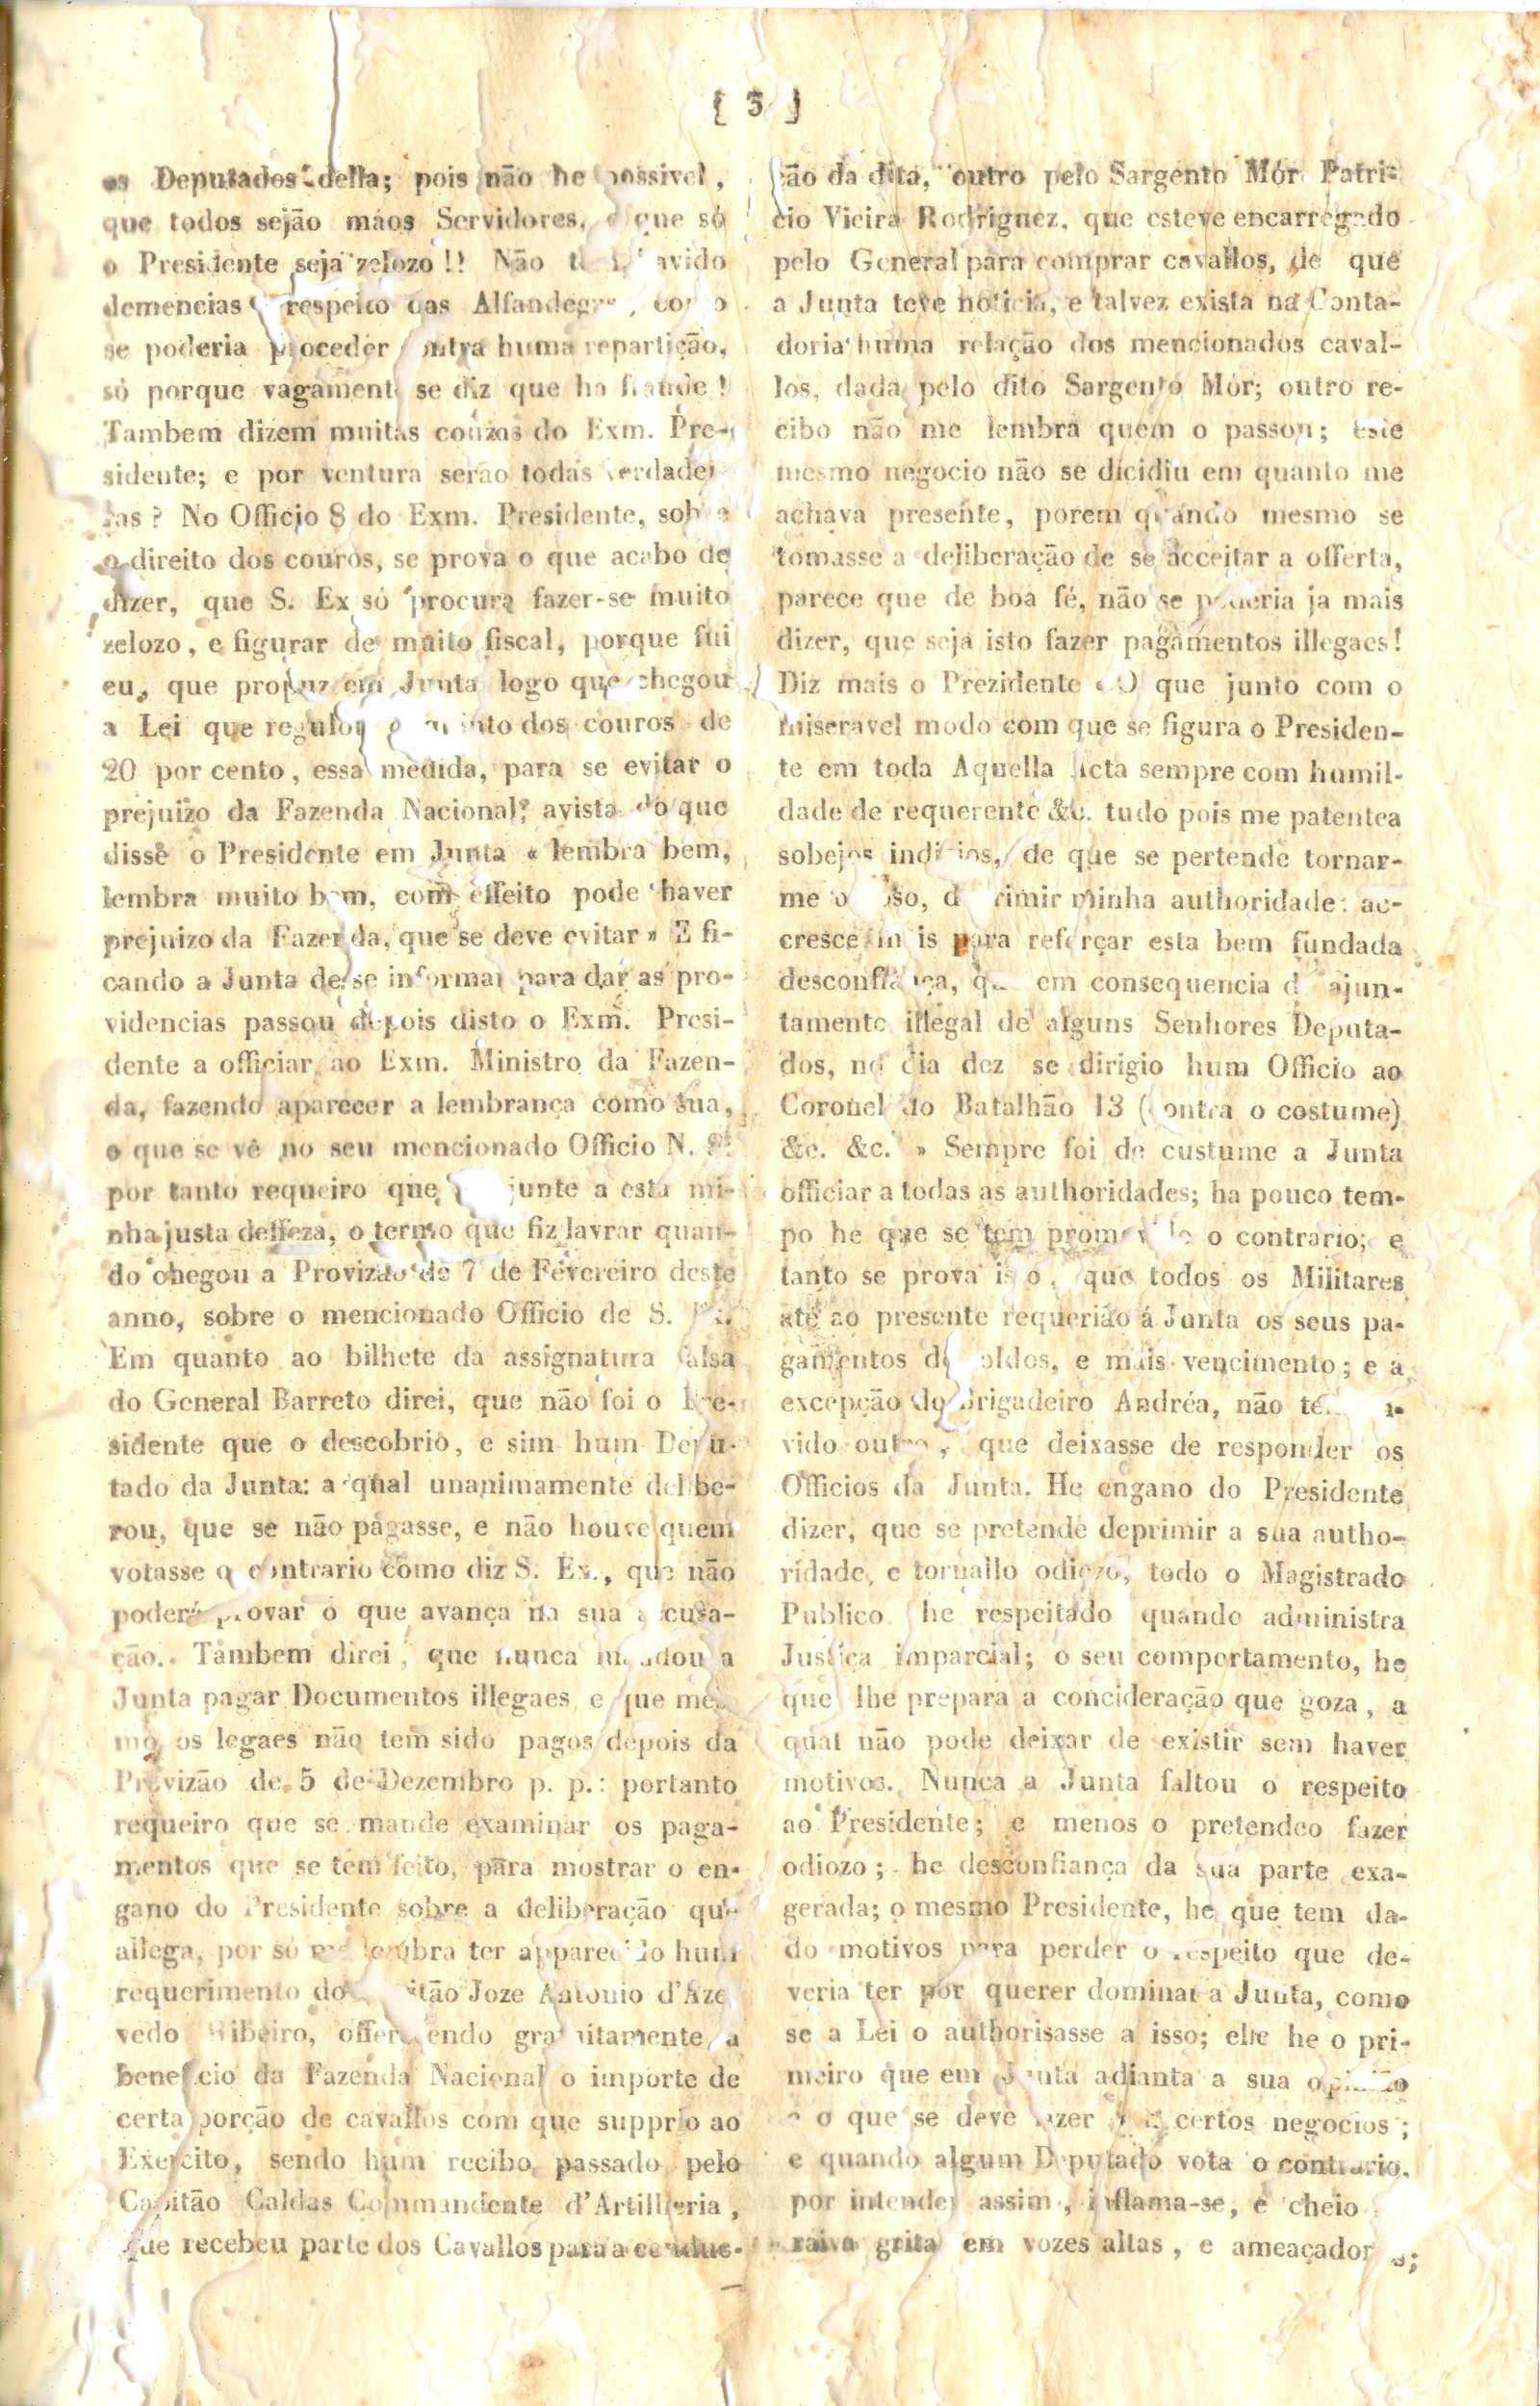 [ 3 ]
os Deputados della; pois não he possivel,
que todos sejão máos Servidores, e que só
o Presidente seja zelozo!! Não
demencias respeito das Alfandegas,
se poderia proceder contra huma repartição,
só porque vagamente se diz que ha fraude!
Tambem dizem muitas couzas do Exm. Pre-
sidente; e por ventura serão todas verdadei
ras? No Officio 8 do Exm. Presidente, sobre
o direito dos couros, se prova o que acabo de
dizer, que S. Ex só procura fazer-se muito
zelozo, e figurar de muito fiscal, porque fui
eu, que propuz em Junta logo que chegou
a Lei que regulou dos couros de
20 por cento, essa medida, para se evitar o
prejuizo da Fazenda Nacional, avista do que
disse o Presidente em Junta « lembra bem,
lembra muito bem, com effeito pode haver
prejuizo da Fazenda, que se deve evitar» E fi-
cando a Junta de se informar para dar as pro-
videncias passou depois disto o Exm. Presi-
dente a officiar ao Exm. Ministro da Fazen-
da, fazendo aparecer a lembrança como sua,
o que se vê no seu mencionado Officio N. 8:
por tanto requeiro que junte a esta mi-
nha justa deffeza, o termo que fiz lavrar quan-
do chegou a Provizão de 7 de Fevereiro deste
anno, sobre o mencionado Officio de S. Ex.
Em quanto ao bilhete da assignatura falsa
do General Barreto direi, que não foi o Pre-
sidente que o descobrio, e sim hum Depu-
tado da Junta: a qual unanimamente delibe-
rou, que se não págasse, e não houve quem
votasse o contrario como diz S. Ex., que não
poderá provar o que avança na sua accusa-
ção. Tambem direi, que nunca mandou a
Junta pagar Documentos illegaes e que mes
mo os legaes não tem sido pagos depois da
Provizão de 5 de Dezembro p. p.: portanto
requeiro que se mande examinar os paga-
mentos que se tem feito, para mostrar o en-
gano do Presidente sobre a deliberação que
allega, por só me lembra ter apparecido hum
requerimento do Capitão Joze Antonio d'Aze
vedo Ribeiro, offerecendo gratuitamente a
beneficio da Fazenda Nacional o importe de
certa porção de cavallos com que supprio ao
Exercito, sendo hum recibo passado pelo
Capitão Caldas Commandente d'Artilheria,
que recebeu parte dos Cavallos para a conduc-
ção da dita, outro pelo Sargento Mór Patri-
cio Vieira Rodriguez, que esteve encarregado
pelo General para comprar cavallos, de que
a Junta teve noticia, e talvez exista na Conta-
doria huma relação dos mencionados caval-
los, dada pelo dito Sargento Mór; outro re-
cibo não me lembra quem o passou; este
mesmo negocio não se dicidiu em quanto me
achava presente, porem quando mesmo se
tomasse a deliberação de se acceitar a offerta,
parece que de boa fé, não se poderia ja mais
dizer, que seja isto fazer pagamentos illegaes!
Diz mais o Prezidente « O que junto com o
miseravel modo com que se figura o Presiden-
te em toda Aquella Acta sempre com humil-
dade de requerente &c. tudo pois me patentea
sobejos indicios, de que se pertende tornar-
me minha authoridade: ac-
cresce mais para reforçar esta bem fundada
desconfiança, que em consequencia d ajun-
tamento illegal de alguns Senhores Deputa-
dos, no dia dez se dirigio hum Officio ao
Coronel do Batalhão 13 (contra o costume)
&c. &c. » Sempre foi de custume a Junta
officiar a todas as authoridades; ha pouco tem-
po he que se tem promovido o contrario; e
tanto se prova isto, que todos os Militares
até ao presente requerião á Junta os seus pa-
gamentos de soldos, e mais vencimento; e a
excepção do Brigadeiro Andréa, não tem ha-
vido outro, que deixasse de responder os
Officios da Junta. He engano do Presidente
dizer, que se pretende deprimir a sua autho-
ridade, e tornallo odiozo, todo o Magistrado
Publico he respeitado quando administra
Justiça imparcial; o seu comportamento, he
que lhe prepara a concideração que goza, a
qual não pode deixar de existir sem haver
motivos. Nunca a Junta faltou o respeito
ao Presidente; e menos o pretendeo fazer
odiozo; he desconfiança da sua parte exa-
gerada; o mesmo Presidente, he que tem da-
do motivos para perder o respeito que de-
veria ter por querer dominar a Junta, como
se a Lei o authorisasse a isso; elle he o pri-
meiro que em Junta adianta a sua opinião
o que se deve fazer certos negocios;
e quando algum Deputado vota o contrario.
por intender assim, inflama-se, e cheio
raiva grita em vozes altas, e ameaçadoras;